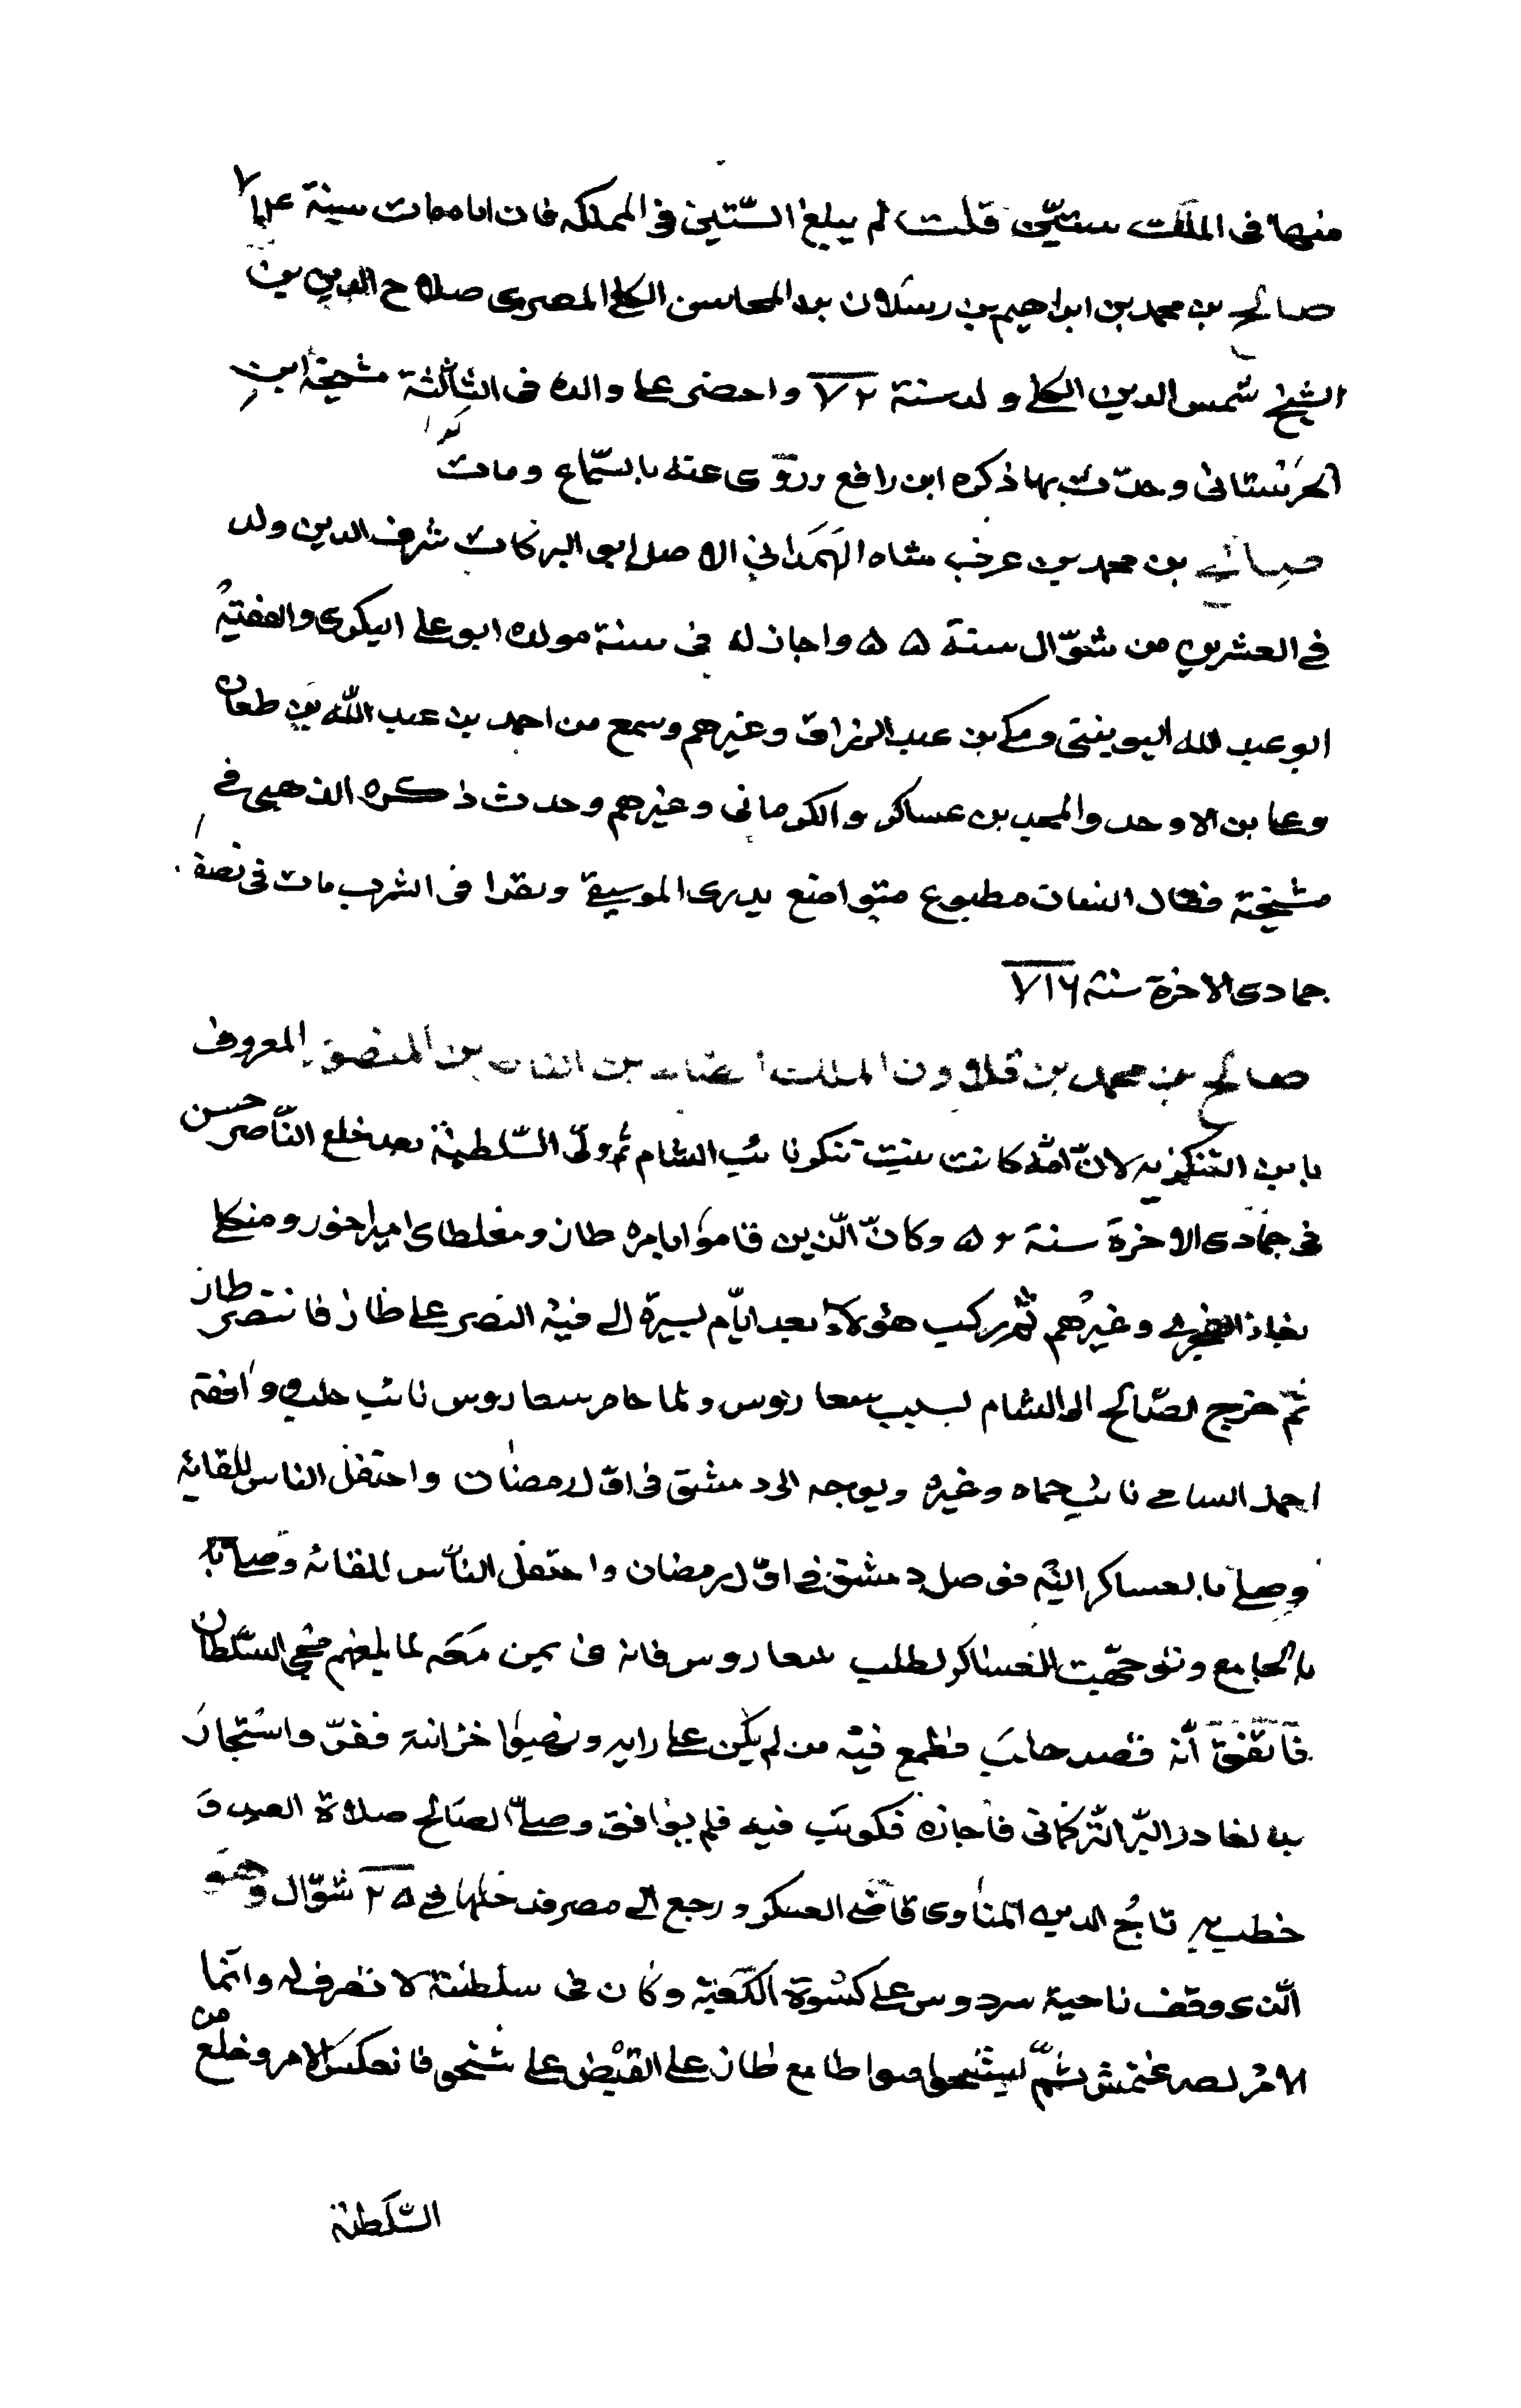 منها فى الملك ستين قلت لم يبلغ الستين فى المملكه فان اباه مات سنة
صالح بن محمد بن ابراهيم بن رسلان بن المحاسن الكلى المصرى صلاح الدين بن
الشيخ شمس الدين الكلى ولد سنة ٧٢ واحضر على والده فى الثالثة مشيخة ابن
الحرستانى وحدّث بها ذكره ابن رافع وروى عنه بالسّماع ومات
صالح بن محمد بن عرب شاه الهَمَدانى الاصل ابو البركات شرف الدين ولد
فى العشرين من شوّال سنة ٥٥ واجاز له فى سنة مولده ابو على البكرى والفقيه
ابو عبد الله اليونينى ومكى بن عبد الرزاق وغيرهم وسمع من احمد بن عبد الله بن طعان
وعلى بن الاوحد والمجد بن عساكر والكرمانى وغيرهم وحدث ذكره الذهبى فى
مشيخته فقال مطبوع متواضع يدرى الموسيقى ويقرا فى الترب مات فى نصف
جمادى الاخرة سنة ٧١٦
صالح بن محمد بن قلاون الملك بن بن المنصور المعروف
بابن التنكزيه لانّ امّه كانت بنت تنكز نائب الشام ثم ولى السّلطنة بعد خلع النّاصر حسن
فى جمادى الاخرة سنة ٥٢ وكان الّذين قاموا بامره طاز ومغلطاى اميراخور ومنكلى
بغا الفخرى وغيرهم ثم ركب هؤلاء بعد ايّام يسيرة الى قبة النصر على طاز فانتصر طاز
ثمّ خرج الصّالح الى الشام بسبب بيبغا روس ولما خامر بيبغا روس نائب حلب ووافقه
احمد الساقى نائب حماه وغيره وتوجه الى دمشق فى اوّل رمضان واحتفل الناس للقائه
وصلى بالعساكر اليه فوصل دمشق فى اوّل رمضان واحتفل النّاس للقائه وصلى
بالجامع وتوجّهت العساكر لطلب بيبغا روس فانه فى من مَعَه لما بلغهم مجى السّلطان
فاتّفق أنّه قصد حلب فطمع فيه من لم يكن على رايه ونهبوا خزانته ففرّ واستجار
بن لغادر التركمانى فاجازه فكوتب فيه فلم يوافق وصلّى الصالح صلاة العيد و
خطب به تاج الدين المناوى قاضى العسكر ورجع الى مصر فدخلها فى ٢٥ شوّال وهو
الّذى وقف ناحية سردوس على كسوة الكعبة وكان فى سلطنته لا تصرف له وانّما
الامر لصرغتمش ثمّ لشيخو طاز على القبض على شيخو فانعكس الامر وخلع من
السّلطنة